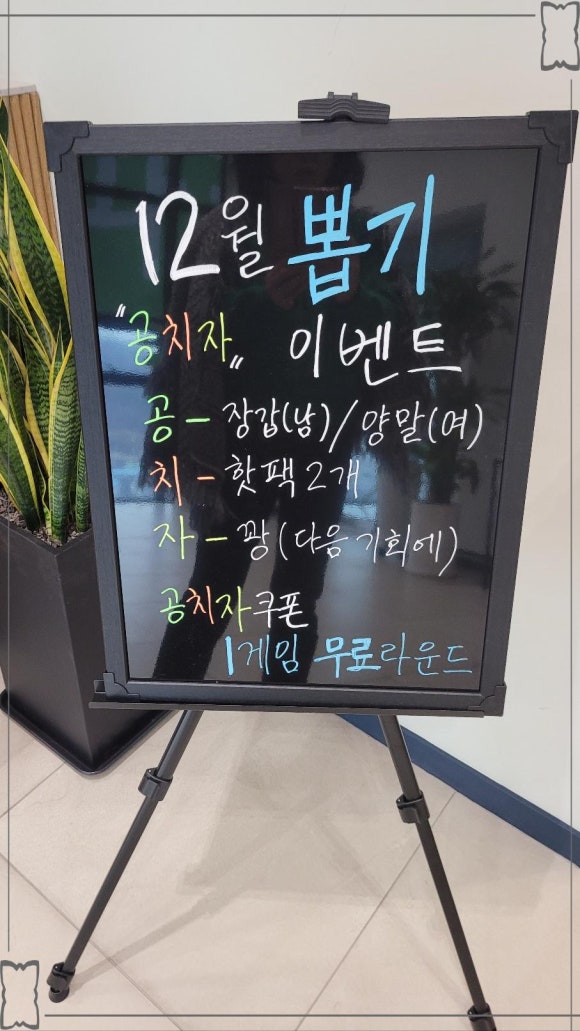 12월 뽑기
"공치자" 이벤트
공 - 장갑(남)/양말(여)
치 - 핫팩 2개
자 - 꽝(다음 기회에)
공치자쿠폰
1게임 무료라운드